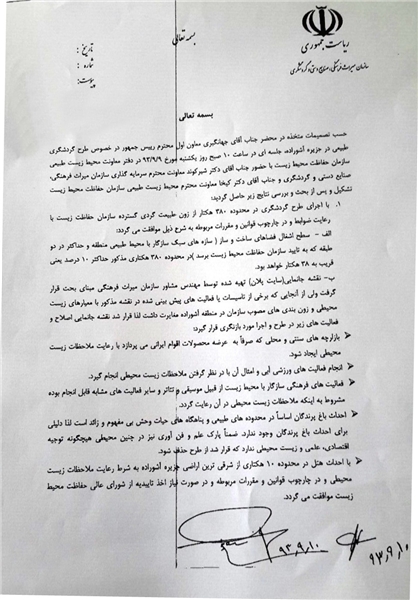 بسمه تعالی
ریاست جمهوری
سازمان میراث فرهنگی، صنایع دستی و گردشگری
تاریخ :
شماره :
پیوست :
بسمه تعالی
حسب تصمیمات متخذه در محضر جناب آقای جهانگیری معاون اول محترم رییس جمهور در خصوص طرح گردشگری
طبیعی در جزیره آشوراده، جلسه ای در ساعت ۱۰ صبح روز یکشنبه مورخ ۹۳/۹/۹ در دفتر معاونت محیط زیست طبیعی
سازمان حفاظت محیط زیست با حضور جناب آقای دکتر شیرکوند معاونت محترم سرمایه گذاری سازمان میراث فرهنگی،
صنایع دستی و گردشگری و جناب آقای دکتر کیخا معاونت محترم محیط زیست طبیعی سازمان حفاظت محیط زیست
تشکیل و پس از بحث و بررسی نتایج زیر حاصل گردید:
۱. با اجرای طرح گردشگری در محدوده ۳۸۰ هکتار از زون طبیعت گردی گسترده سازمان حفاظت محیط زیست با
رعایت ضوابط و در چارچوب قوانین و مقررات مربوطه به شرح ذیل موافقت می گردد:
الف – سطح اشغال فضاهای ساخت و ساز ( سازه های سبک سازگار با محیط طبیعی منطقه و حداکثر در دو
طبقه که به تایید سازمان حفاظت محیط زیست برسد )در محدوده ۳۸۰ هکتاری مذکور حداکثر ۱۰ درصد یعنی
قریب به ۳۸ هکتار خواهد بود.
ب- نقشه جانمایی(سایت پلان) تهیه شده توسط مهندس مشاور سازمان میراث فرهنگی مبنای بحث قرار
گرفت ولی از آنجایی که برخی از تاسیسات یا فعالیت های پیش بینی شده در نقشه مذکور با معیارهای زیست
محیطی و زون بندی های مصوب سازمان در منطقه آشوراده مغایرت داشت لذا قرار شد نقشه جانمایی اصلاح و
فعالیت های زیر در طرح و اجرا مورد بازنگری قرار گیرد:
بازارچه های سنتی و محلی که صرفاً به عرضه محصولات اقوام ایرانی می پردازد با رعایت ملاحظات زیست
محیطی ایجاد شود.
انجام فعالیت های ورزشی آبی و امثال آن با در نظر گرفتن ملاحظات زیست محیطی انجام گیرد.
فعالیت های فرهنگی سازگار با محیط زیست از قبیل موسیقی و تئاتر و سایر فعالیت های مشابه قابل انجام بوده
مشروط به اینکه ملاحظات زیست محیطی در آن رعایت گردد.
احداث باغ پرندگان اساساً در محدوده های طبیعی و پناهگاه های حیات وحش بی مفهوم و زائد است لذا دلیلی
برای احداث باغ پرندگان وجود ندارد. ضمناً پارک علم و فن آوری نیز در چنین محیطی هیچگونه توجیه
اقتصادی، علمی و زیست محیطی ندارد که قرار شد از طرح حذف شود.
با احداث هتل در محدوده ۱۰ هکتاری از شرقی ترین اراضی جزیره آشوراده به شرط رعایت ملاحظات زیست
محیطی و در چارچوب قوانین و مقررات مربوطه و در صورت نیاز اخذ تاییدیه از شورای عالی حفاظت محیط
زیست موافقت می گردد.
۹۳,۹,۱۰
۹۳,۹,۱۰